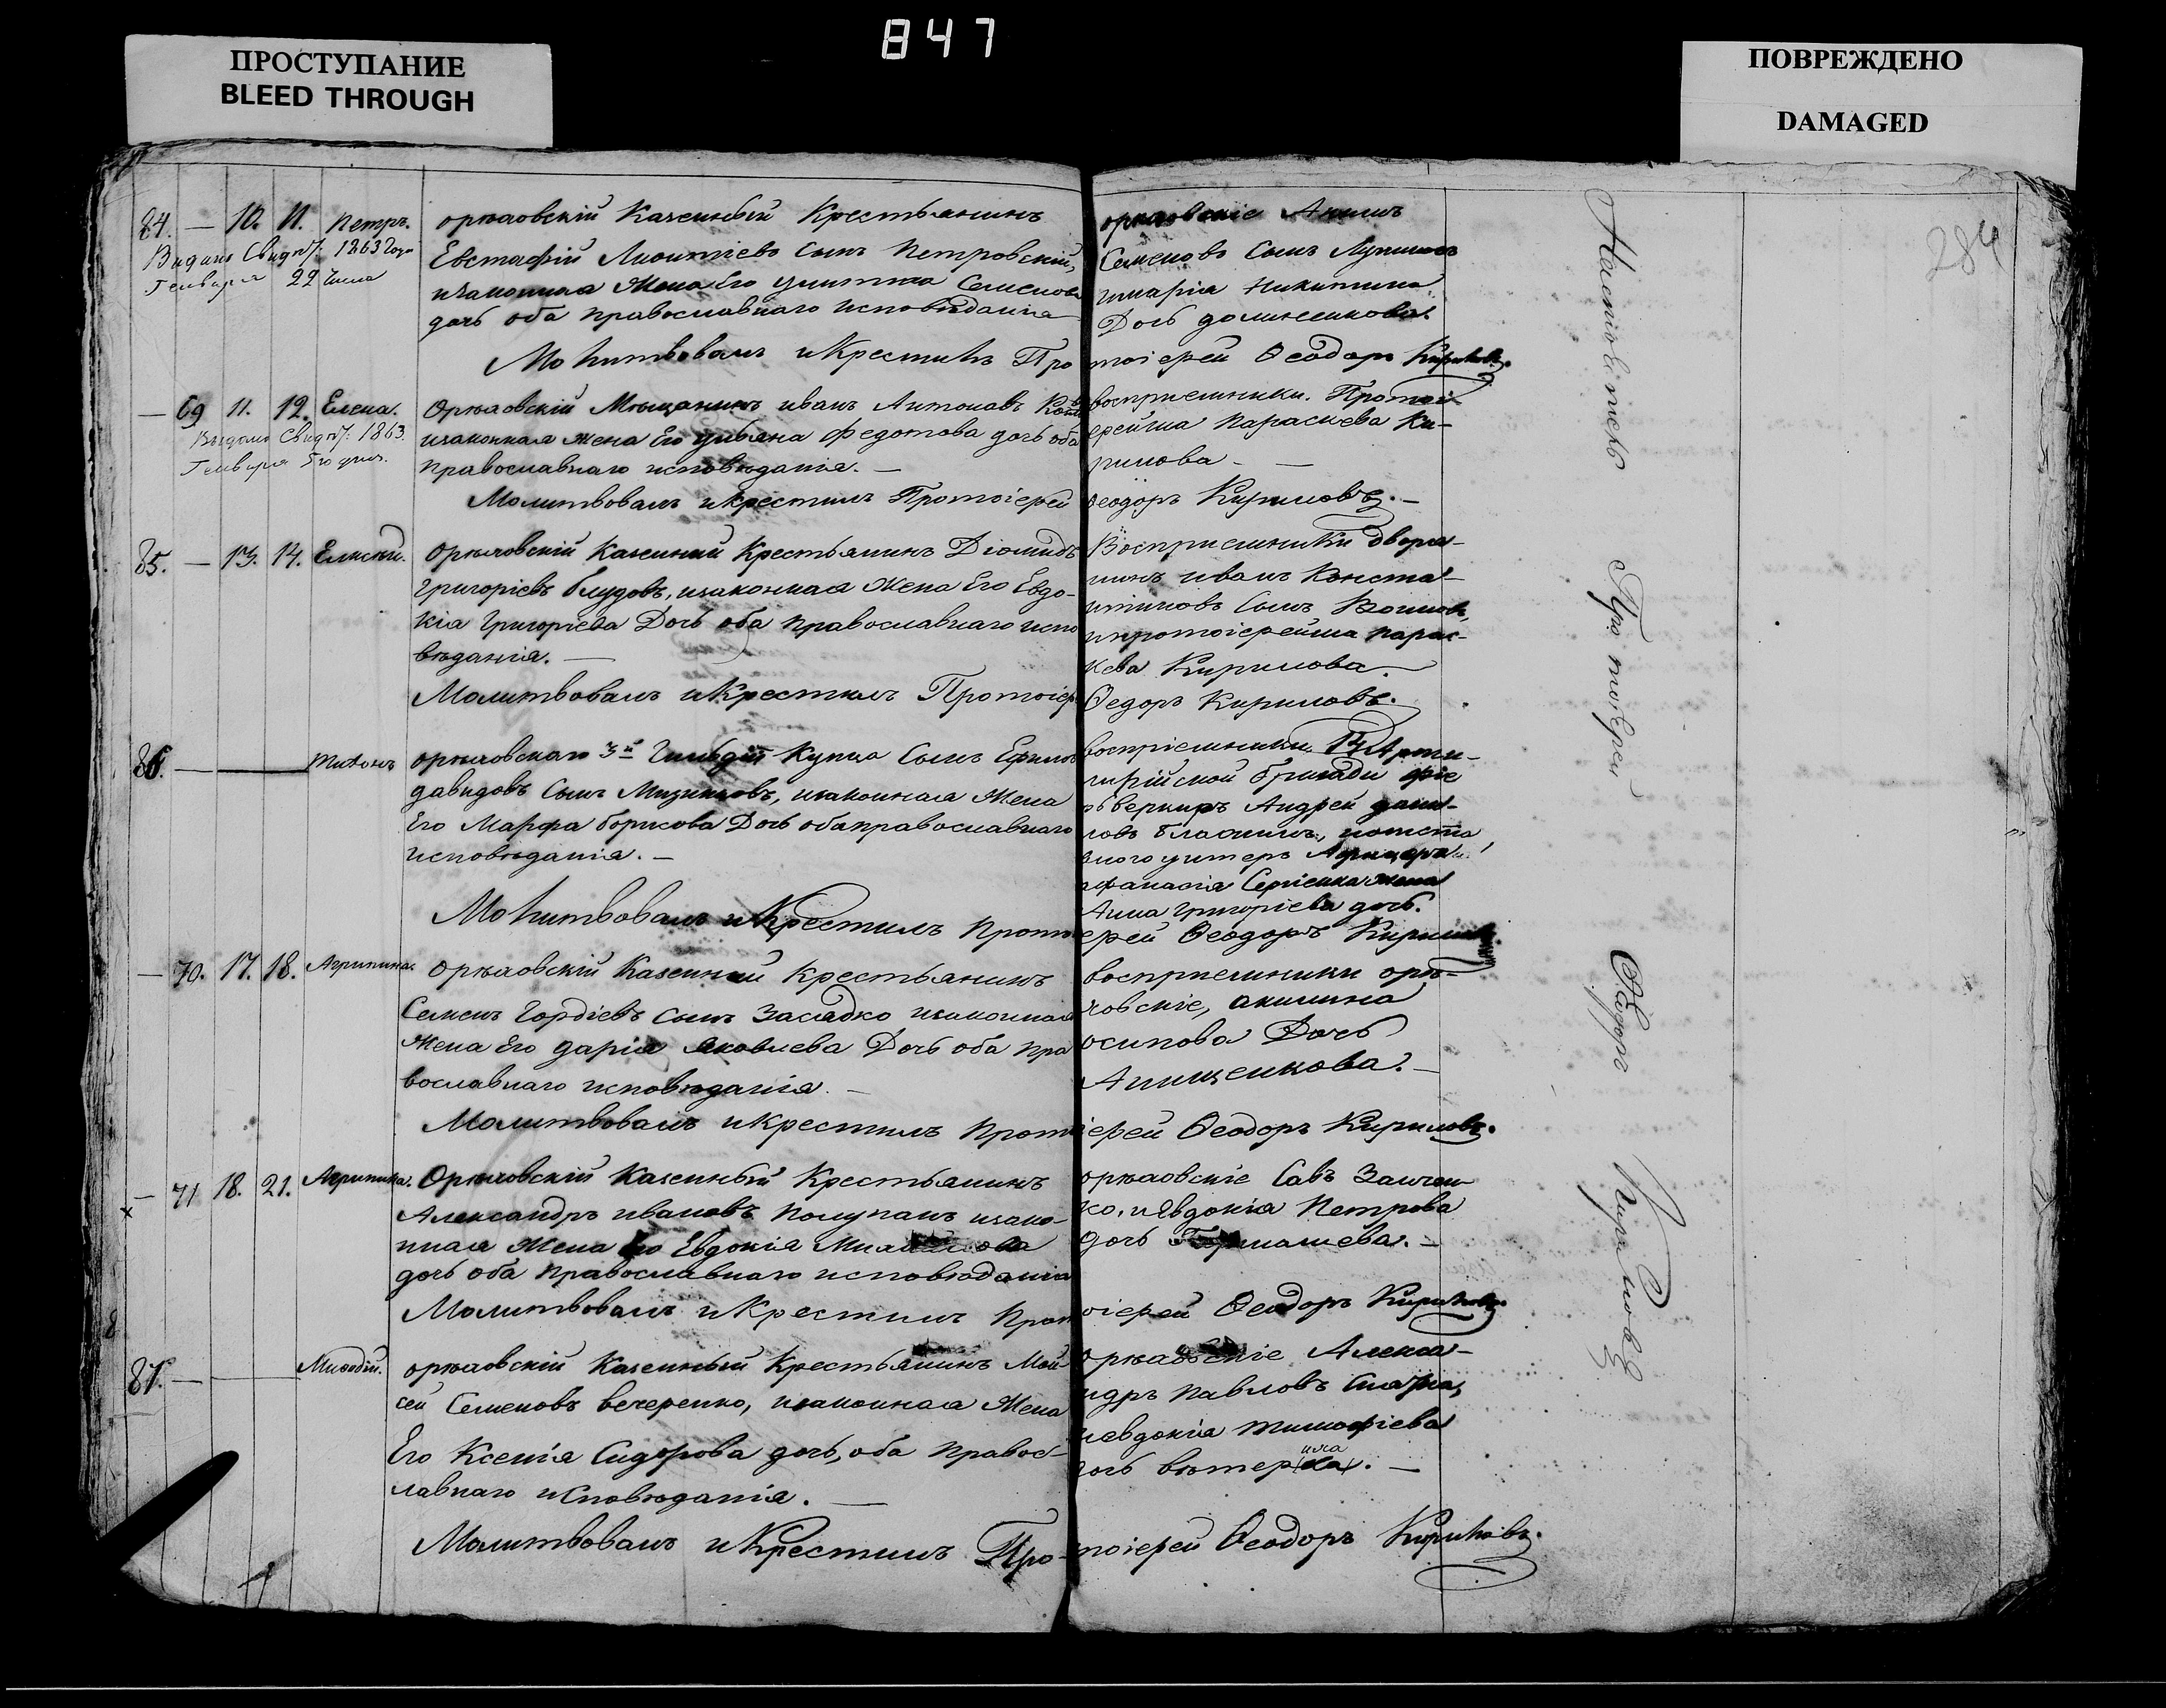 847
ПРОСТУПАНИЕ
BLEED THROUGH
ПОВРЕЖДЕНО
DAMAGED
284
84. — 10. 11. Петръ.
Выдано Свид. 1863 Года
Генваря 22 Числа
орѣховскій Казенный Крестьянинъ
Евстафій Леонтіевъ Сынъ Петровскій,
изаконная Жена Его Улитта Семенова
дочь оба православнаго исповѣданія
орѣховскіе Акимъ
Семеновъ Сынъ
имарія Никитина
Дочь долженкова.
Молитвовалъ иКрестилъ Протоіерей Ѳеодоръ Кириловъ.
— 69 11. 12. Елена.
Выдано Свид. 1863.
Генваря 5го дня.
Орѣховскій Мѣщанинъ иванъ Антоновъ
изаконная жена Его ульяна Федотова дочь оба
православнаго исповѣданія. —
восприемники. Протоі
ерейша Параскева Ки-
рилова — —
Молитвовалъ икрестилъ Протоіерей Ѳеодоръ Кириловъ. —
85. — 13. 14. Елисей.
Орѣховскій Казенный Крестьянинъ Діомидъ
Григоріевъ блудовъ, изаконная Жена Его Евдо-
кія Григоріева Дочь оба православнаго испо
вѣданія. —
Восприемники дворя-
нинъ иванъ Конста-
нтиновъ Сынъ Воиновъ,
ипротоіерейша парас-
кева Кирилова.
Молитвовалъ иКрестилъ Протоіерей Ѳедоръ Кириловъ.
86. — Тихонъ
орѣховскаго 3й Гильдіи Купца Сынъ Ефимъ
давидовъ Сынъ Мизинковъ, изаконная Жена
Его Марфа борисова Дочь оба православнаго
исповѣданія. —
восприемники, 13 Арти-
лерійской бригады фее
рьверкиръ Андрей дани-
ловъ
ного унтеръ Афицера
афанасія Сергіенка жена
Анна Григоріева дочь.
Молитвовалъ иКрестилъ протоіерей Ѳеодоръ Кириловъ.
— 70. 17. 18. Агрипина.
орѣховскій Казенный Крестьянинъ
Семенъ Гордіевъ Сынъ Засядко изаконная
Жена Его дарія Яковлева Дочь оба пра
вославнаго исповѣданія. —
восприемники орѣ-
ховскіе, акилина
осипова Дочь
Анищенкова. —
Молитвовалъ икрестилъ протоіерей Ѳеодоръ Кириловъ.
— 71 18. 21. Агрипина.
х
Орѣховскій Казенный Крестьянинъ
Александръ ивановъ Полупанъ изако-
нная Жена Его Евдокія
дочь оба православнаго исповѣданія
орѣховскіе Савъ
ко, иЯвдокія Петрова
дочь —
Молитвовалъ иКрестилъ протоіерей Ѳеодоръ Кириловъ.
87. — Мефодій.
орѣховскій Казенный Крестьянинъ Мой
сей Семеновъ вечеренко, изаконная Жена
Его Ксенія Сидорова дочь, оба Правос-
лавнаго исповѣданія. —
орѣховскіе Алекса-
ндръ Павловъ
иевдокія тимофіева
дочь —
Молитвовалъ иКрестилъ Протоіерей Ѳеодоръ Кириловъ.
Протоіерей
Ѳеодоръ
Кириловъ